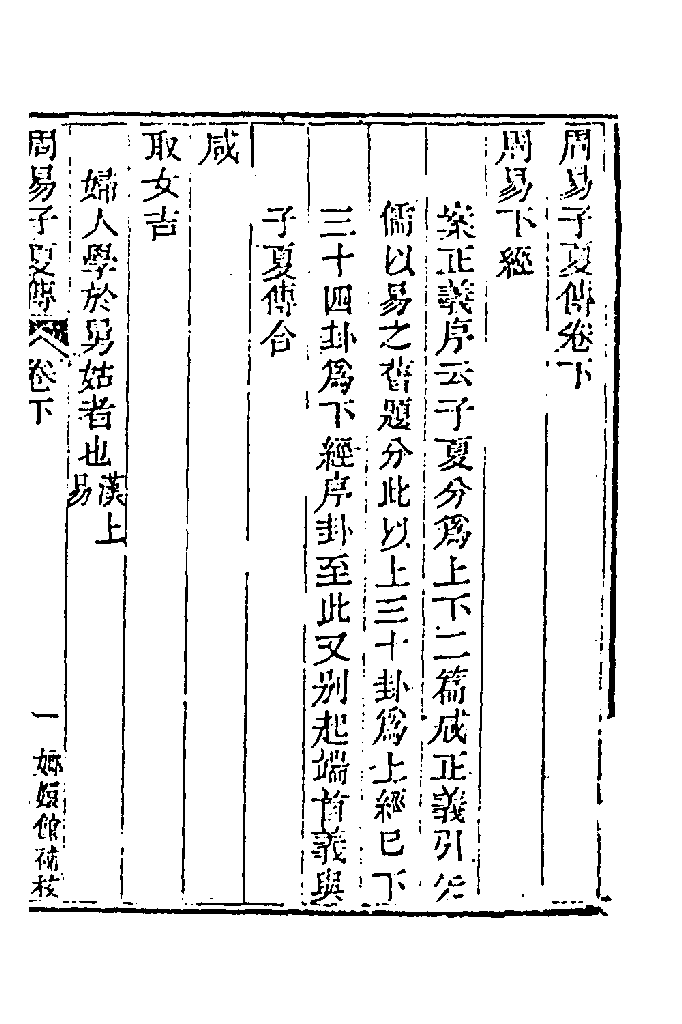 周易子夏傳卷下
周易下經
案正義序云子夏分爲上下二篇咸正義引先
儒以易之舊題分此以上三十卦爲上經巳下
三十四卦爲下經序卦至此又別起端首義與
子夏傳合
咸
取女吉
婦人學於舅姑者也漢上易
周易子夏傳 卷下 一 嫏嬛館補校